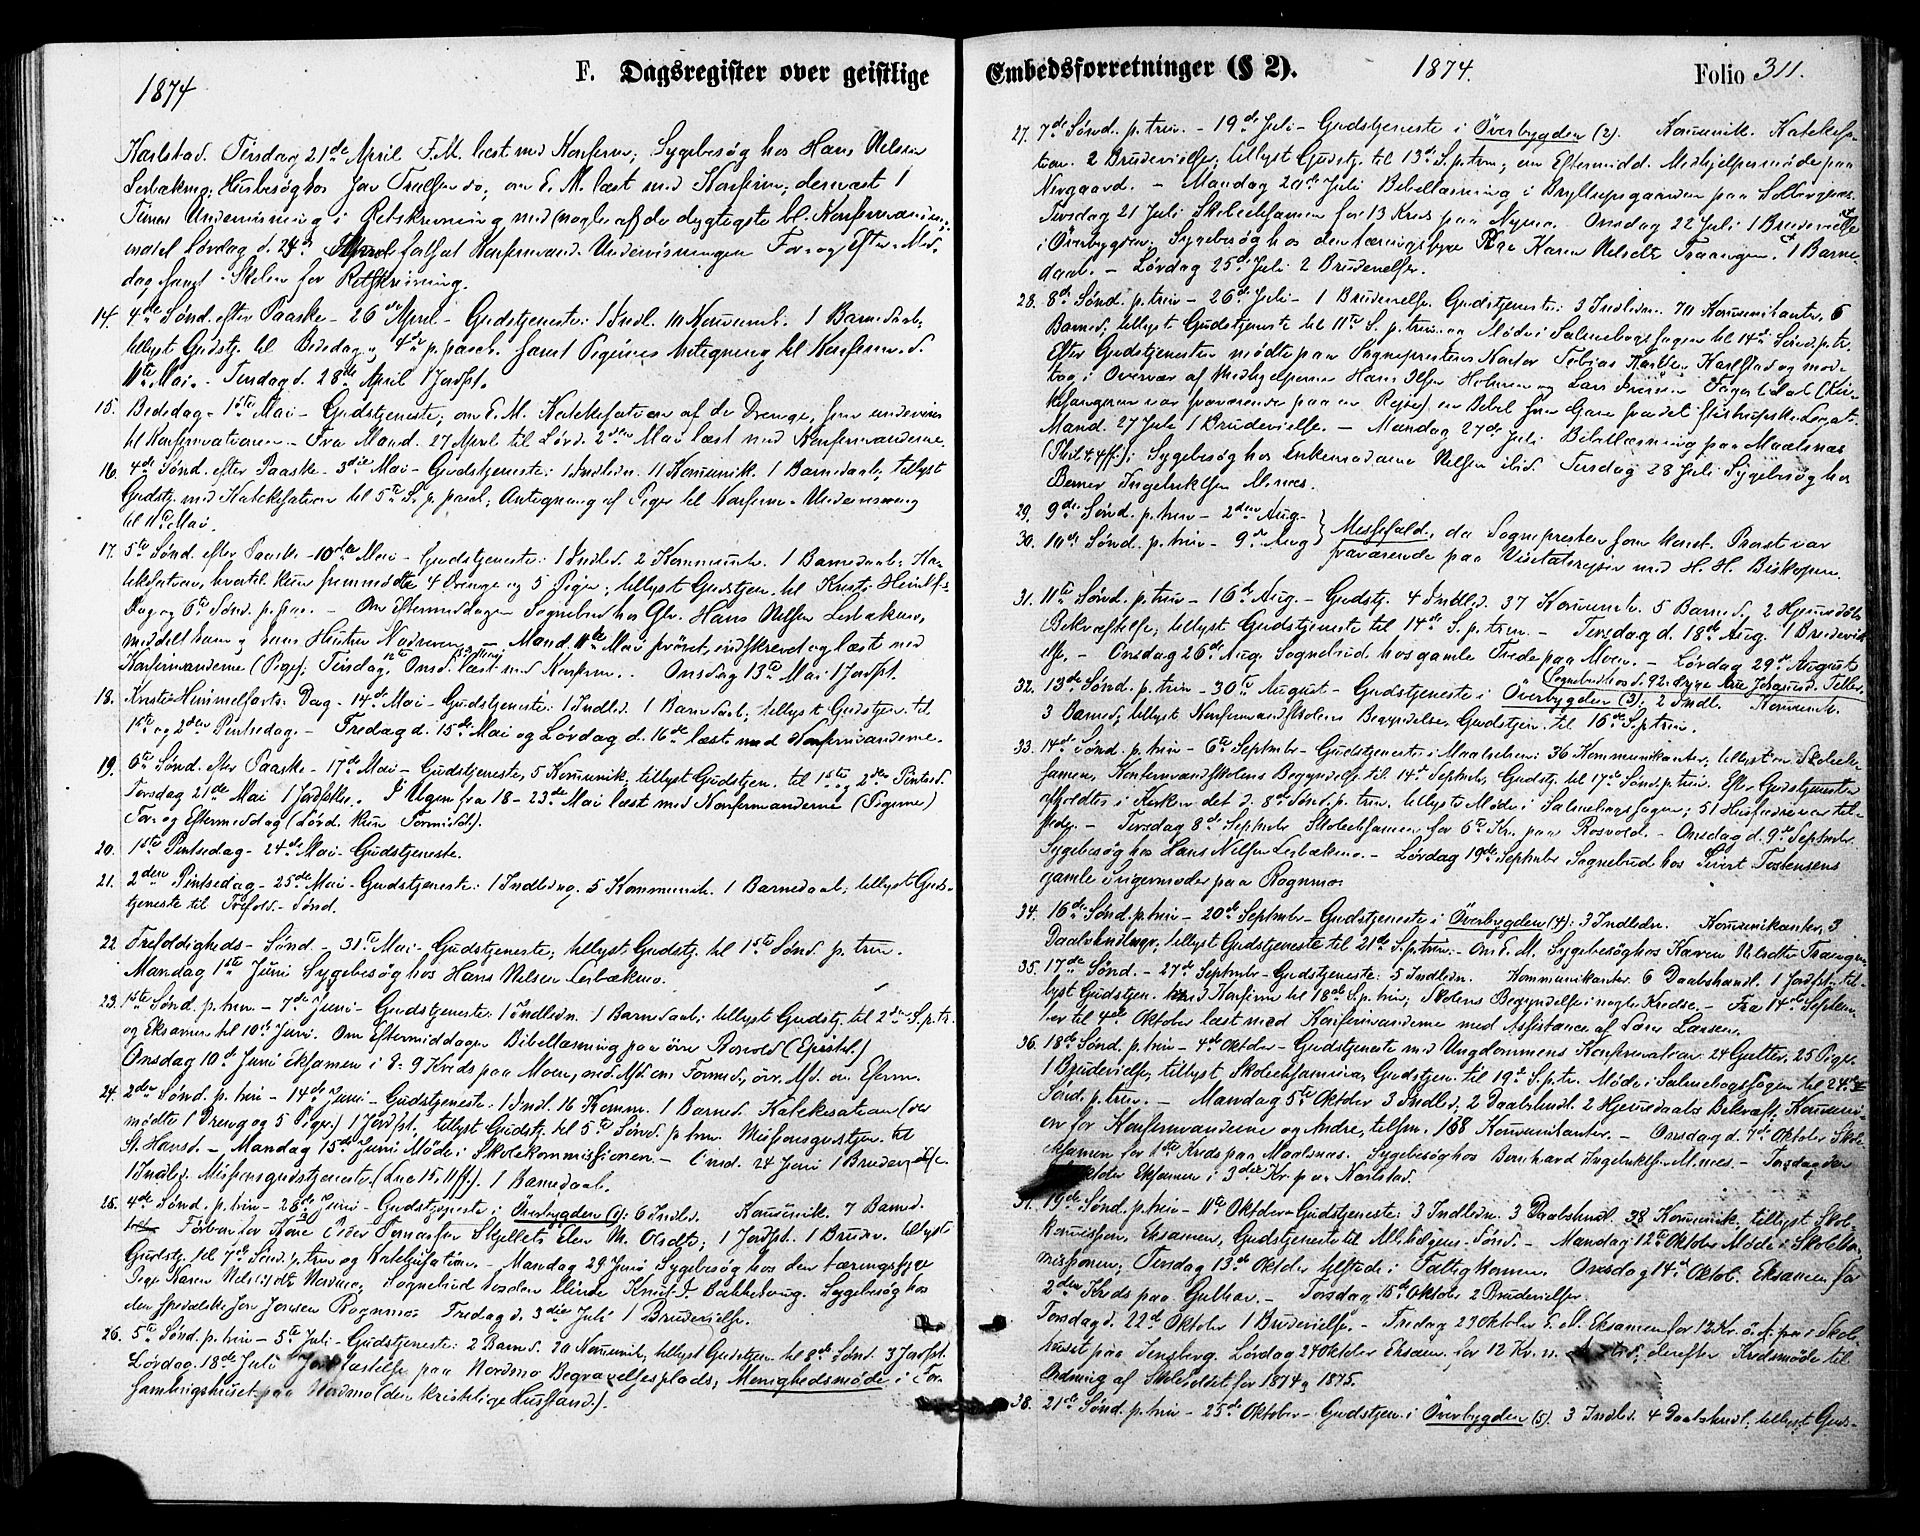 1874
F. Dagsregister over geistlige
Karlstad. Tirsdag 21de April F.M. læst med Konfirm; Sygebesøg hos Hans Nielsen
Lerbækmo, Husbesøg hos Jon do, om E.M. læst med Konfirm; dernæst 1
Times Undervisning i Retskrivning med (nogle af de dygtigste bl. Konfirmanderne
indtil Lørdag d. fortsat Konfirmand-Undervisningen For- og Efter-Mid-
dag samt Skolen for Retskrivning.
14. 4de Sønd. efter Paaske - 26de April - Gudstjeneste: 1 Indl. 10 Kommunik. 1 Barnedaab;
tillyst Gudstj. til Bededag og 4de p. pasch. samt Pigernes Antegning til Konfirm. d.
11te Mai. - Tirsdag d. 28de April 1 Jordf.
15. Bededag - 1ste Mai - Gudstjeneste; om E.M. Katekisation af de Drenge, som undervises
til Konfirmationen. - Fra Mand. 27 April til Lørd. 2den Mai læst med Konfirmanderne.
16. 4de Sønd. efter Paaske - 3die Mai - Gudstjeneste: 1 Indledn. 11 Kommunik. 1 Barnedaab; tillyst
Gudstj. med Katekisation til 5te S. p. pasch; Antegning af Piger til Konfirm.- Undervisning
til 11te Mai.
17. 5te Sønd. efter Paaske - 10de Mai - Gudstjeneste: 1 Indled. 2 Kommunik. 1 Barnedaab; Ka-
tekisation, hvortil kun fremmødte 4 Drenge og 5 Piger; tillyst Gudstjen. til Kristi Himlf.
Dag og 6te Sønd. p. pas. - Om Eftermiddagen Sognebud hos Gbr. Hans Nielsen Lerbækmo,
meddelt ham og hans Hustru Nadveren. - Mand. 11te Mai prøvet, indskrevet og læst med
Konfirmanderne (Piger; Tirsdag 12te Onsd. læst med Konfirm. Onsdag 13te Mai 1 Jordf.
18. Kristi Himmelfarts-Dag - 14de Mai - Gudstjeneste: 1 Indled. 1 Barnedaab; tillyst Gudstjen. til
1ste og 2den Pintsedag. - Fredag d. 15de Mai og Lørdag d. 16de læst med Konfirmanderne.
19. 6te Sønd. efter Paaske - 17de Mai - Gudstjeneste, 5 Komunik, tillyst Gudstjen. til 1ste og 2den Pintsed.
Torsdag 21de Mai 1 Jordf. I Ugen fra 18 - 23de Mai læst med Konfirmanderne (Pigerne)
For- og Eftermiddag (Lørd. kun Formidd.).
20. 1ste Pintsedag - 24de Mai - Gudstjeneste.
21. 2den Pintsedag - 25de Mai - Gudstjeneste: 1 Indledn, 5 Kommunik. 1 Barnedaab; tillyst Guds-
tjeneste til Trefold.- Sønd.
22. Trefoldigheds- Sønd. - 31te Mai - Gudstjeneste; tillyst Gudstj. til 1ste Sønd. p. trin.
Mandag 1ste Juni Sygebesøg hos Hans Nielsen Lerbækmo.
23. 1ste Sønd. p. trin - 7de Juni - Gudstjeneste: 1 Indledn. 1 Barnedaab; tillyst Gudstj. til 2den S. p. tr.
og Eksamen til 10de Juni. Om Eftermiddagen Bibellæsning paa Rosvold (Epistel.)
Onsdag 10de Juni Eksamen i 8-9 Kreds paa Moen, ned. Afd. om Formid., øvr. Afd. om Efterm.
24. 2den Sønd. p. trin - 14de Juni - Gudstjeneste: 1 Indl. 16 Komm. 1 Barned. Katekisation (der
mødte 1 Dreng og 5 Piger) 1 Jordf. tillyst Gudstj. til 5te Sønd. p. trin. Missionsgudstjen. til
St. Hansd. - Mandag 15de Juni Møde i Skolekommissionen. - Onsd. 24 Juni 1 Brudevielse.
1 Indled. Missionsgudstjeneste (Luc 15, 11 ff.). 1 Barnedaab.
25. 4de Sønd. p. trin - 28de Juni - Gudstjeneste i Øverbygden (1): 6 Indled. Komunik. 7 Barned.
Forbøn for Kone Skjellets M. Olsdt; 1 Jordf. 1 Brudev. tillyst
Gudstj. til 7de Sønd. p. trin og Katekisation. - Mandag 29 Juni Sygebesøg hos den tæringssyge
Pige Karen Nilsdt Sognebud hos den blinde Knud J. Bakkehaug. Sygebesøg hos
den spedalske Jon Jonsen Rognmo. Fredag d. 3die Juli 1 Brudevielse.
26. 5te Sønd. p. trin - 5te Juli - Gudstjeneste: 2 Barnd. 20 Komunik, tillyst Gudstjen. til 8de Sønd. 3 Jordf.
Lørdag 18de Juli Jordfæstelse paa Nordmo Begravelsesplads, Menighedsmøde i For-
samlingshuset paa Nordmo (den kristelige Husstand.).
Embedsforretninger (§ 2). 1874. Folio 311.
27. 7de Sønd. p. trin. - 19de Juli - Gudstjeneste i Øverbygden (2). Komunik. Katekisa-
tion. 2 Brudevielser, tillyst Gudstj. til 13de S. p. trin; om Eftermidd. Medhjelpermøde paa
Nergaard. - Mandag 20de Juli Bibellæsning i Bryllupsgaarden paa
Tirsdag 21 Juli Skoleeksamen for 13 Kreds paa Nymo. Onsdag 22 Juli 1 Brudevielse
i Øverbygden, Sygebesøg hos den tæringssyge Pige Karen Nilsdt. Traangen. 1 Barne-
daab. - Lørdag 25de Juli 2 Brudevielser.
28. 8de Sønd. p. trin - 26de Juli - 1 Brudevielse. Gudstjeneste: 3 Indledn. 70 Komunikanter, 6
Barned, tillyst Gudstjeneste til 11te S. p. trin og Møde i Salmebogssagen til 14de Sønd. p. tr.
Efter Gudstjenesten mødte paa Sognepresten Kontor Tobias Karlsen Karlstad og mod-
tog i Overvær af Medhjelperne Hans Olsen Holmen og Lars Fagerlidal (Kir-
kesangeren var fraværende paa en Rejse) en Bibel som Gave fra det Legat.
Mand. 27 Juli 1 Brudevielse. - Mandag 27de Juli Bibellæsning paa Maalsnes
(Phil. 4. 4 ff.); Sygebesøg hos Enkemadame Nielsen ibid. Tirsdag 28 Juli Sygebesøg hos
Berner Ingebrigtsen Minæs.
29. 9de Sønd. p. trin - 2den Aug.
30. 10de Sønd. p. trin - 9de Aug. Messefald, da Sognepresten som konst. Provst var
fraværende paa Visitatsrejse med H. H. Biskopen.
31. 11te Sønd. p. trin - 16de Aug. - Gudstj. 4 Indled. 37 Komunik. 5 Barned, 2 Hjemmedøbts
Bekræftelse; tillyst Gudstjeneste til 14de S. p. trin. - Tirsdag d. 18de Aug. 1 Brudevi-
else. - Onsdag 26de Aug. Sognebud hos gamle Frede paa Moen. - Lørdag 29de August
Sognebud hos d. 92-Syge Are Johannsd.
32. 13de Sønd. p. trin - 30te August - Gudstjeneste i Øverbygden (3): 2 Indl. Komunik.
3 Barned; tillyst Konfirmandskolens Begyndelse, Gudstjen. til 16de S. p. trin.
33. 14de Sønd. p. trin - 6te September - Gudstjeneste i Maalselven: 36 Kommunikanter, tillyst en Skoleek-
samen, Konfirmandskolens Begyndelse til 14de Septmbr, Gudstj. til 17de Sønd. p. trin. Efter Gudstjenesten
afholdtes i Kirken det d. 8de Sønd. p. trin. tillyste Møde i Salmebogssagen; 51 Husfædre var til-
stede. - Tirsdag 8de Septmbr Skoleeksamen for 6te Kr. paa Rosvold. - Onsdag d. 9de Septmbr
Sygebesøg hos Hans Nilsen Lerbækmo. - Lørdag 19de Septmbr Sognebud hos Sivert Tostensens
gamle Svigermoder paa Rognmo.
34. 16de Sønd. p. trin - 20de Septmbr - Gudstjeneste i Øverbygden (4): 3 Indledn. Komunikanter, 3
Daabshandlinger, tillyst Gudstjeneste til 21de S. p. trin. - Om E.M. Sygebesøg hos Karen Nilsdt Traangen.
35. 17de Sønd. - 27de Septmbr - Gudstjeneste: 5 Indledn. Kommunikanter 6 Daabshandl. 1 Jordf; til-
lyst Gudstjen. med Konfirm til 18de S. p. trin; Skolens Begyndelse i nogle Kredse. - Fra 14de Septem-
ber til 4de Oktober læst med Konfirmanderne med Assistance af Lærer Larsen.
36. 18de Sønd. p. trin - 4de Oktober - Gudstjeneste med Ungdommens Konfirmation: 24 Gutter, 25 Piger.
1 Brudevielse, tillyst Skoleeksamina, Gudstjen. til 19de S. p. tr. Møde i Salmebogssagen til 24de
Sønd. p. trin. - Mandag 5te Oktober 3 Indled, 2 Daabshandl. 2 Hjemmedaabs Bekræft, Kommuni-
on for Konfirmanderne og Andre, tilsm. 168 Komunikanter. - Onsdag d. 7de Oktober Skole-
eksamen for 1ste Kreds paa Maalsnes. Sygebesøg hos Bernhard Ingebrigtsen Minæs. - Torsdag den
Oktober Eksamen i 3die Kr. paa Karlstad.
37. 19de Sønd. p. trin - 11te Oktober - Gudstjeneste: 3 Indledn. 3 Daabshandl. 38 Komunik, tillyst Skol-
Eksamen, Gudstjeneste til Allehelgens-Sønd. - Mandag 12te Oktober Møde i Skolekom-
missionen, Tirsdag 13de Oktober tilstede i Fattigkomm. Onsdag 14de Oktob. Eksamen for
2den Kreds paa Gulhav. - Torsdag 15de Oktober 2 Brudevielser.
Torsdag d. 22de Oktober 1 Brudevielse. - Fredag 23 Oktober E.M. Eksamen for 12 Kr. ö. A. paa Skole-
huset paa Iensberg. Lørdag 24 Oktober Eksam. for 12 Kr. n. derefter Kredsmøde til
Ordning af Skoleholdet for 1874 og 1875.
38. 21de Sønd. p. trin - 25de Oktober - Gudstjen. i Øverbygden (5). 3 Indled. 4 Daabshandl; tillyst Guds-